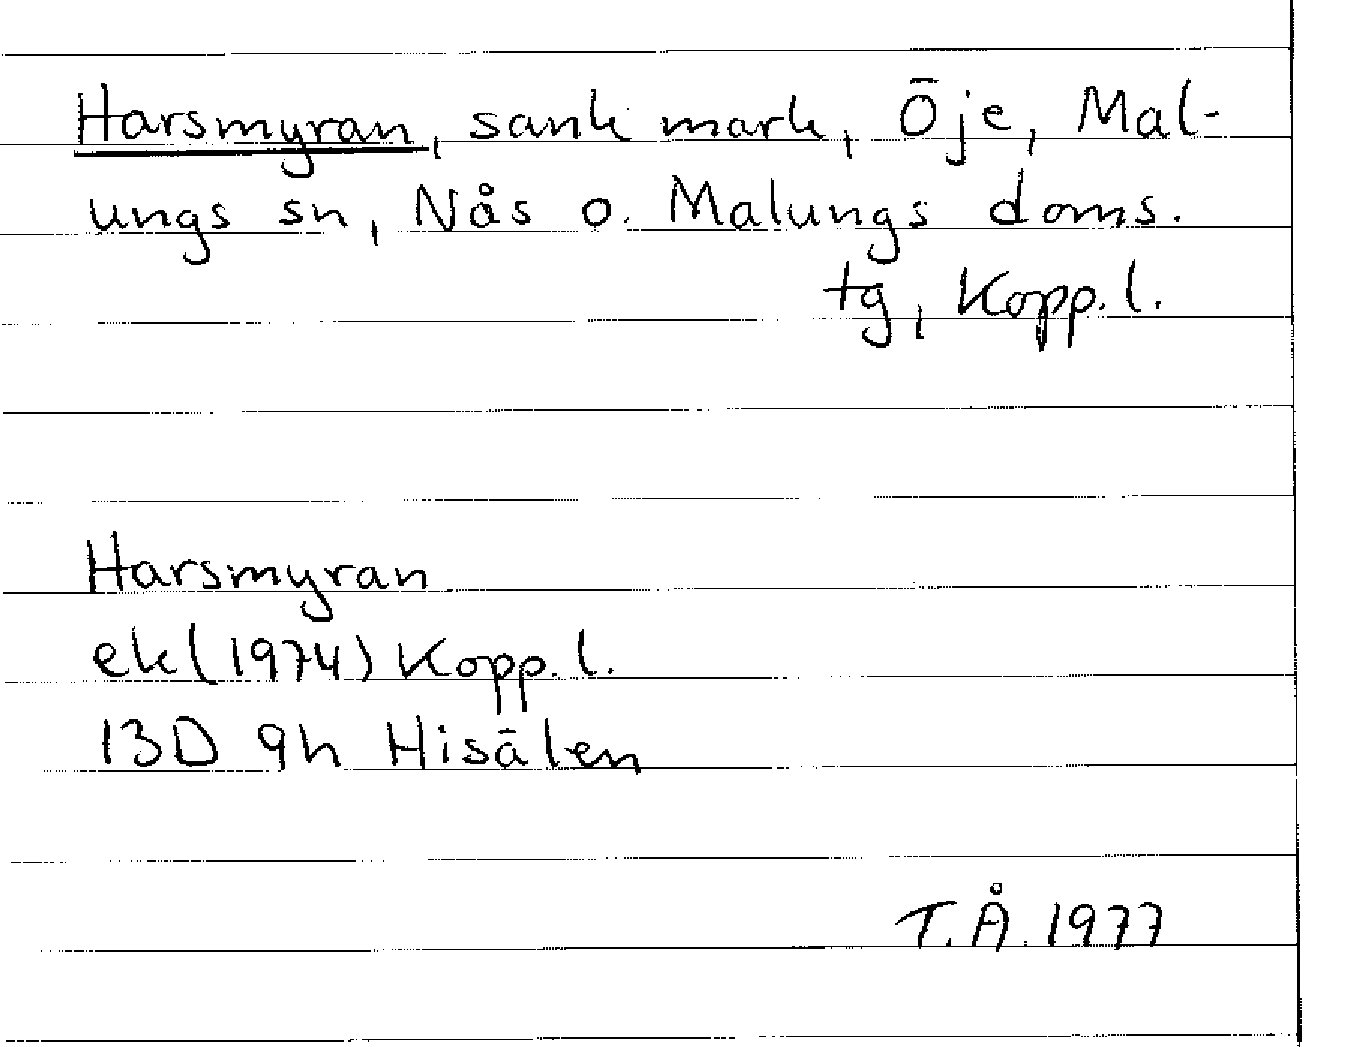 Harsmyran, sank mark, Öje, Mal-
ungs sn, Nås o. Malungs doms.
tg, Kopp.l.
Harsmyran
ek(1974) Kopp.l.
13D 9h Hisälen
T.Å.1977